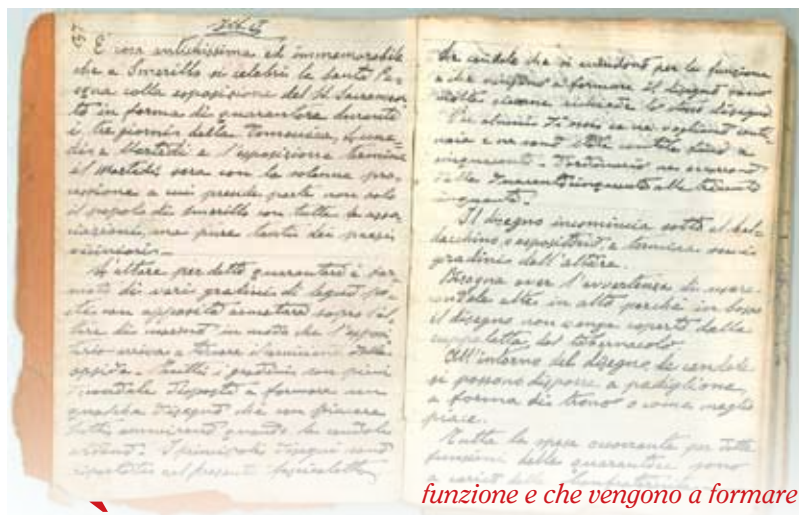 137
È cosa antichissima ed immemorabile
che a Smerillo si celebri la Santa Pa-
squa colla esposizione del SS. Sacramen-
to in forma di quarantore durante
i tre giorni della Domenica, Lune-
dì e Martedì e l'esposizione termina
il Martedì sera con la solenne pro-
cessione a cui prende parte non solo
il popolo di Smerillo con tutte le asso-
ciazioni, ma pure tanti dei paesi
viciniori.
L'altare per dette quarantore è for-
mato di vari gradini di legno po-
sti con apposita sopra l'al-
tare di in modo che l'esposi-
torio arriva a
. Tutti i gradini son pieni
candele disposte a formare un
qualche disegno che con piacere
tutti ammirano quando le candele
ardono. I principali disegni sono
riportati nel presente
le candele che si accendono per la funzione
e che vengono a formare il disegno sono
molte secondo richiede lo stesso disegno
Per alcuni disegni ce ne vogliono centi-
naia e ne sono state contate fino a
cinquecento. D'ordinario ne occorrono
dalle duecentocinquanta alle trecento
cinquanta.
Il disegno incomincia sotto il bal-
dacchino o espositorio e termina sui
gradini dell'altare.
Bisogna aver l'avvertenza di usare
candele alte in alto perché in basso
il disegno non venga coperto dalla
cuppoletta del tabernacolo
All'intorno del disegno le candele
si possono disporre a padiglione,
a forma di trono o come meglio
piace.
Tutte le spese occorrenti per dette
funzioni delle quarantore sono
a carico della Confraternita
funzione e che vengono a formare